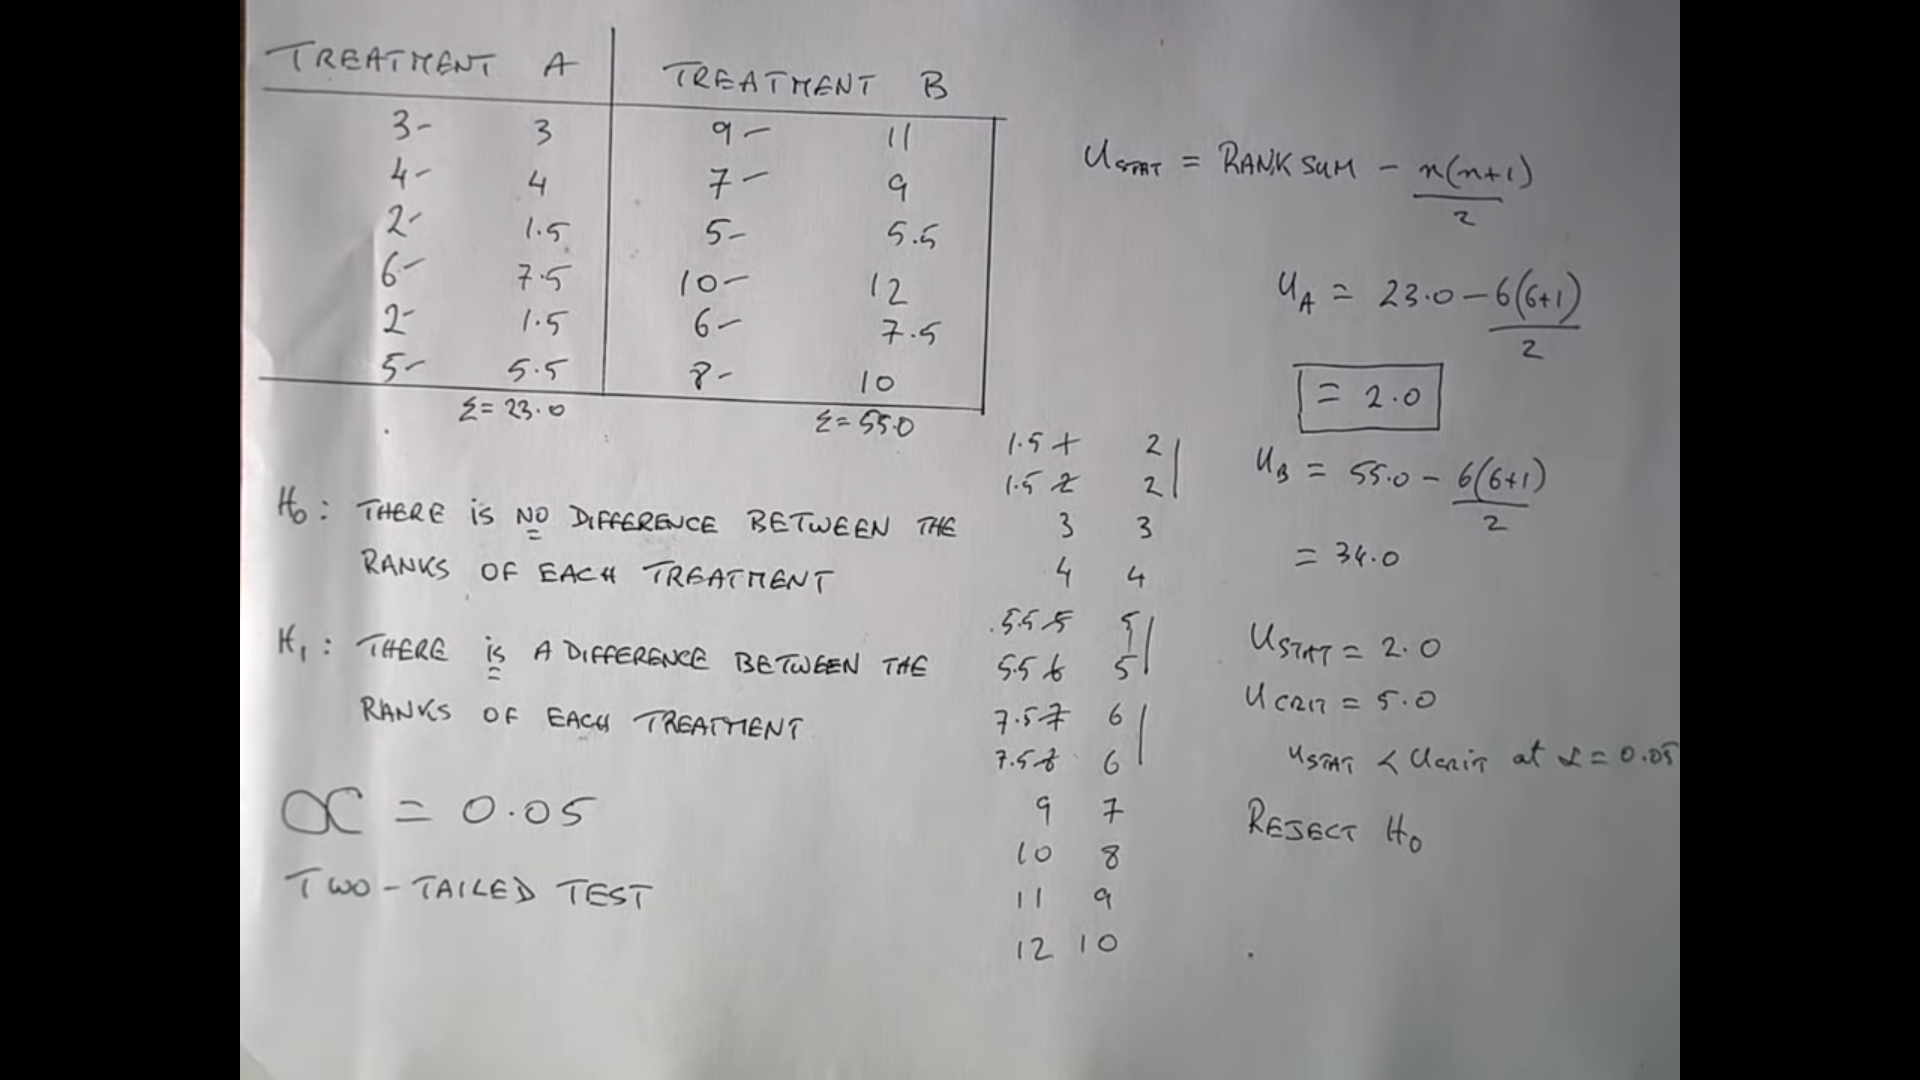 TREATMENT A TREATMENT B
3- 3 9- 11
4- 4 7- 9
2- 1.5 5- 5.5
6- 7.5 10- 12
2- 1.5 6- 7.5
5- 5.5 8- 10
Σ= 23.0 Σ= 55.0
H0: THERE is NO DIFFERENCE BETWEEN THE
RANKS OF EACH TREATMENT
H1: THERE is A DIFFERENCE BETWEEN THE
RANKS OF EACH TREATMENT
α = 0.05
TWO-TAILED TEST
1.5 1 2
1.5 2 2
3 3
4 4
5.5 5 5
5.5 6 5
7.5 7 6
7.5 8 6
9 7
10 8
11 9
12 10
USTAT = RANK SUM - n(n+1)
2
UA = 23.0 - 6(6+1)
2
= 2.0
UB = 55.0 - 6(6+1)
2
= 34.0
USTAT = 2.0
UCRIT = 5.0
USTAT < UCRIT at α = 0.05
REJECT H0